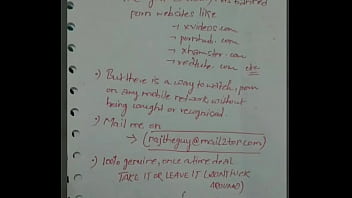 banned
porn websites like
→ xvideos.com
→ pornhub.com
→ xhamster.com
→ redtube.com etc
•) But there is a way to watch, porn
on any mobile network without
being caught or recognised.
•) Mail me on
→ (rajtheguy@mail2tor.com)
•) 100% genuine, once a time deal
TAKE IT OR LEAVE IT (DON'T FUCK
AROUND)